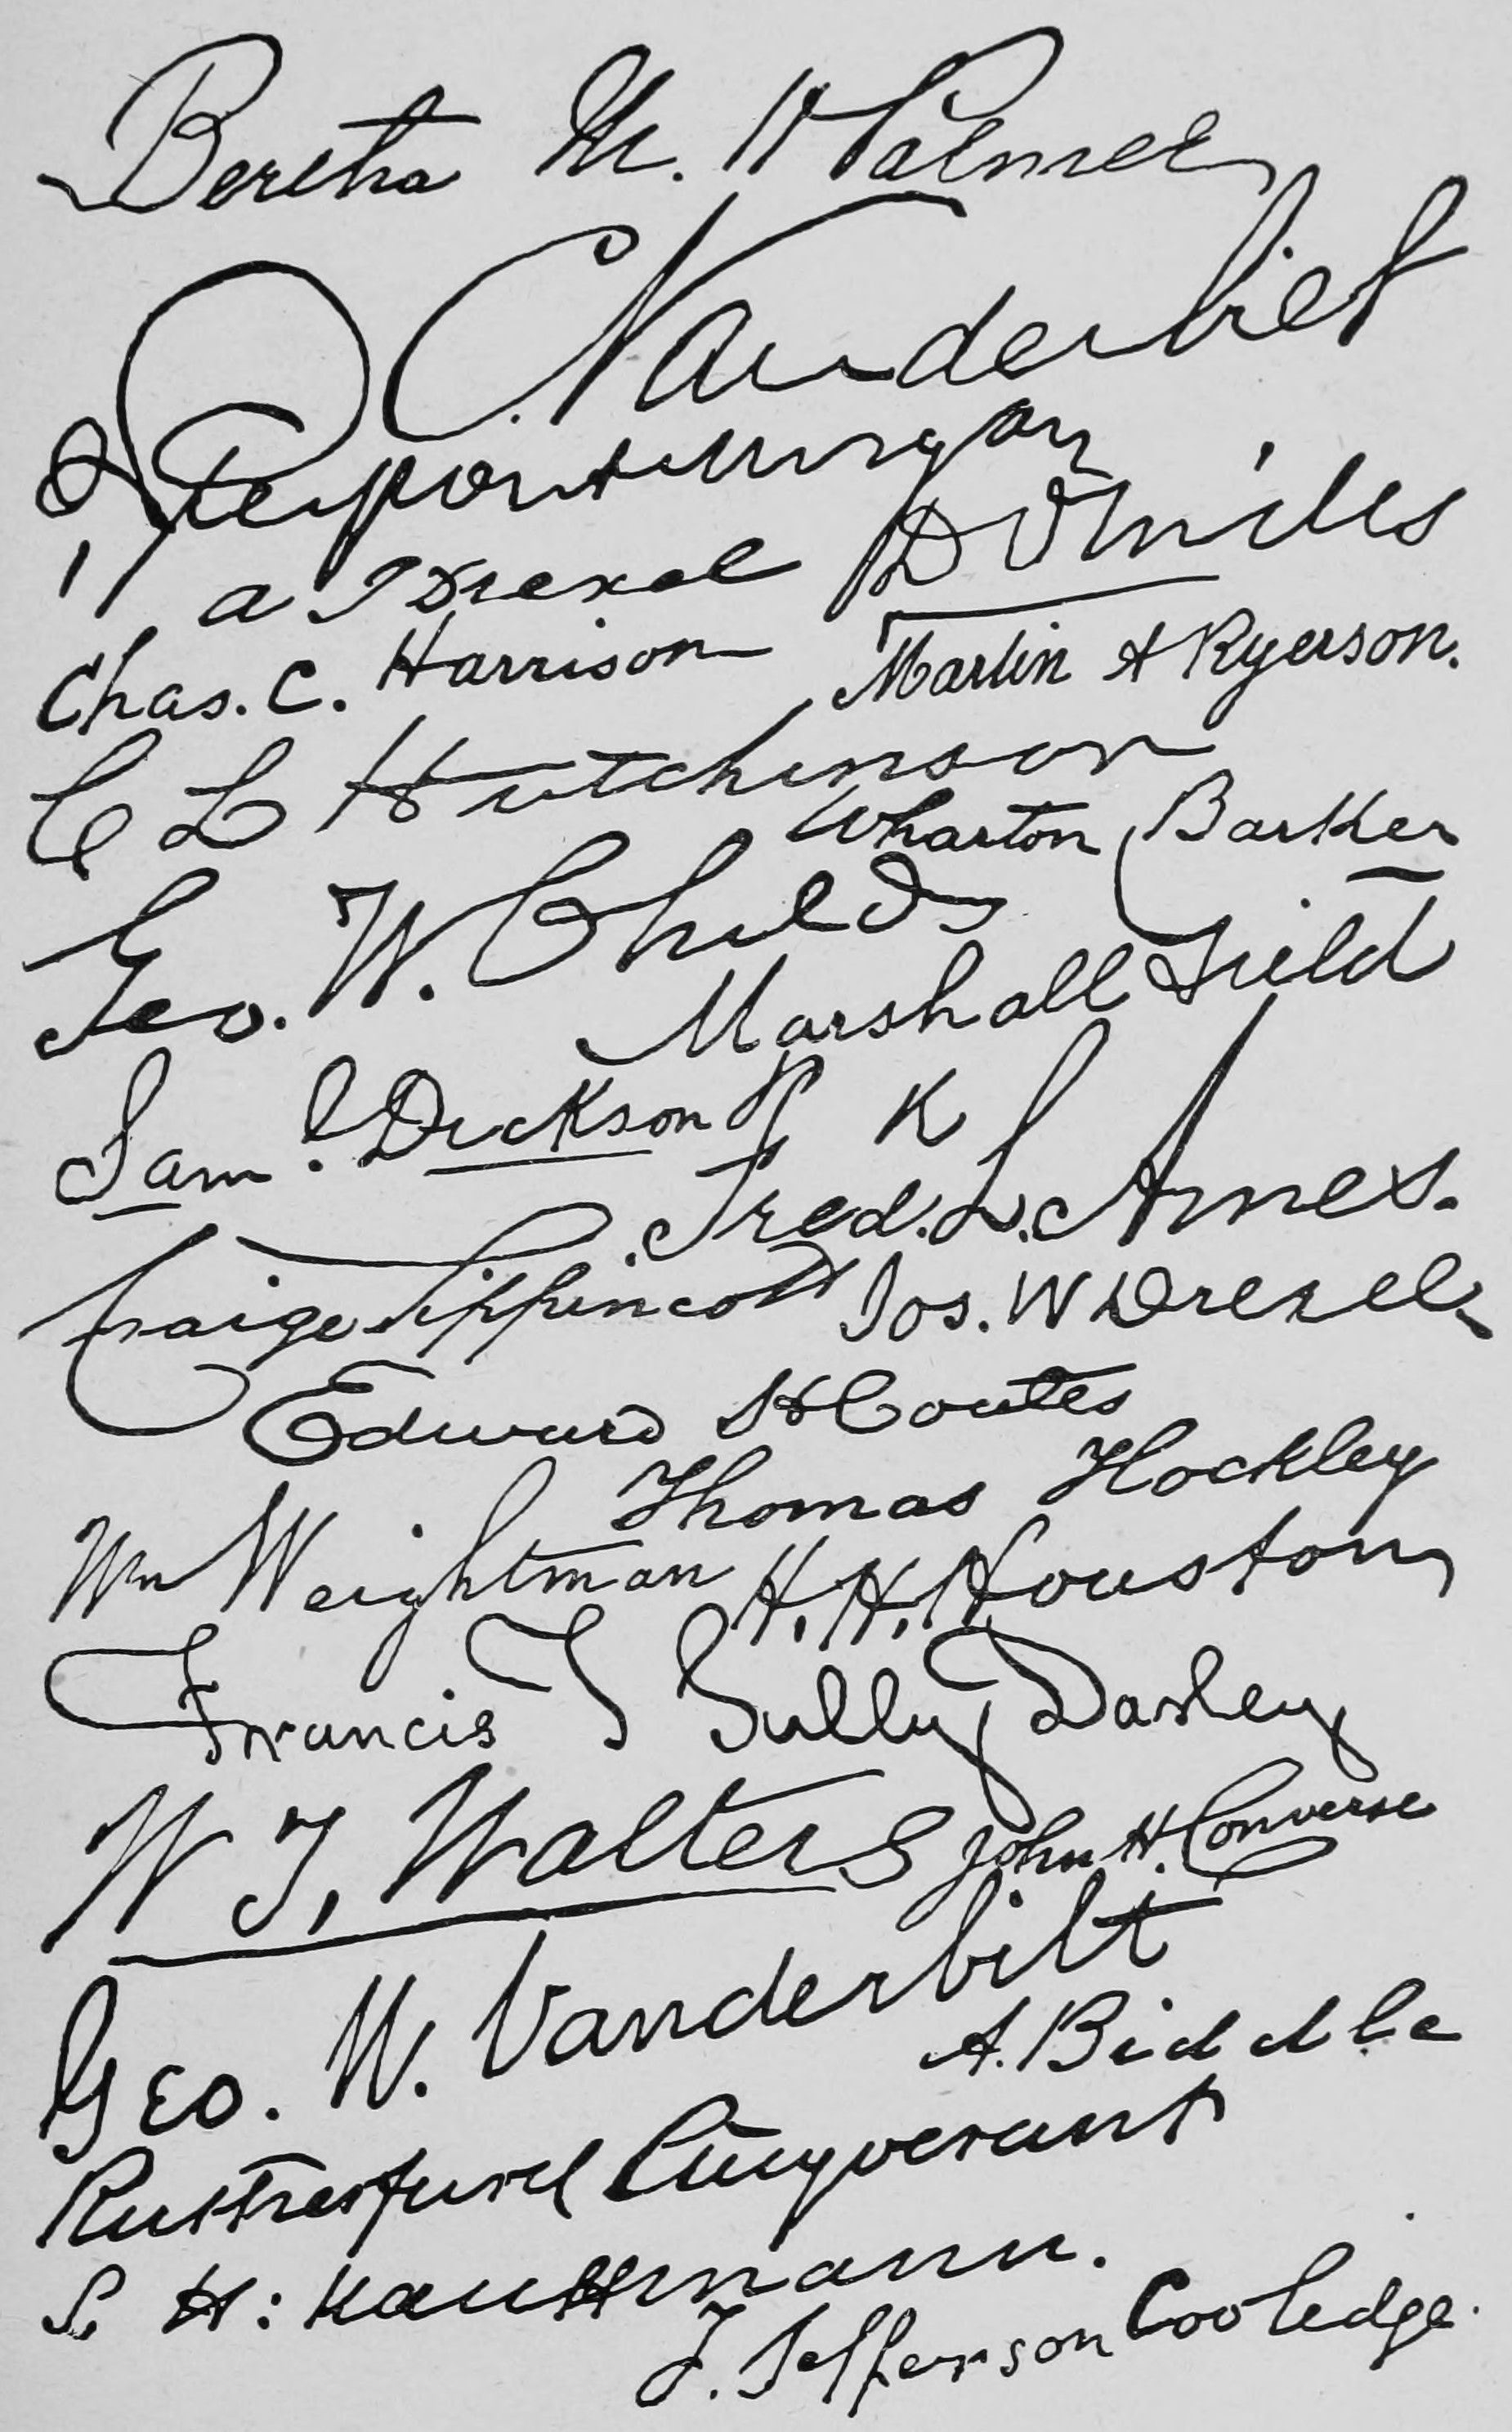 Bertha M. H Palmer
C Vanderbilt
J. Pierpont Morgan
D O Mills
A J Drexel
Chas. C. Harrison
Martin A Ryerson.
C L Hutchinson
Wharton Barker
Geo. W. Childs
Marshall Field
Saml. Dickson
Fred. L. Ames.
Craige Lippincott
Jos. W Drexel
Edward H Coates
Thomas Hockley
Wm Weightman
H. H. Houston
Francis T Sully Darley
W T, Walters
John H. Converse
Geo. W. Vanderbilt
A. Biddle
Rutherfurd Stuyvesant
S. H: Kauffmann.
T. Jefferson Coolidge.